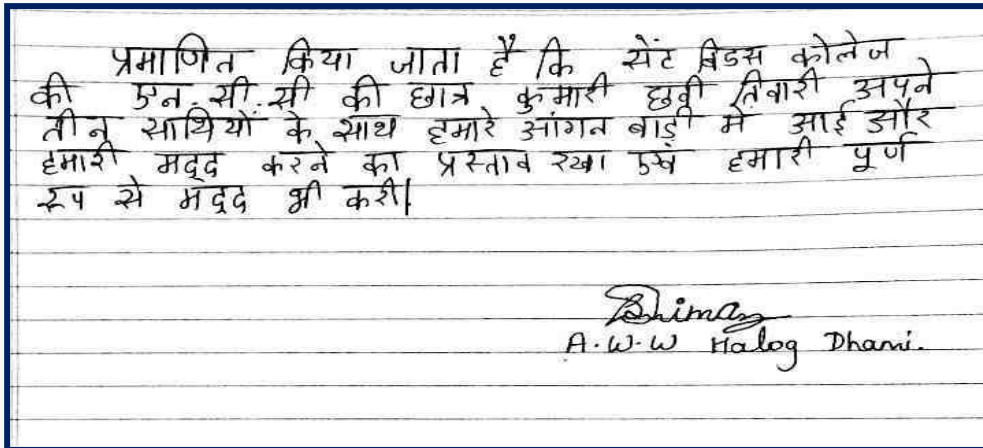 प्रमाणित किया जाता है कि सेंट बिडस कोलेज
की एन.सी.सी की छात्र कुमारी छवी तिवारी अपने
तीन साथियों के साथ हमारे आंगन बाड़ी मे आई और
हमारी मद्दद करने का प्रस्ताव रखा एवं हमारी पूर्ण
रूप से मद्दद भी करी।
A.W.W Halog Dhami.